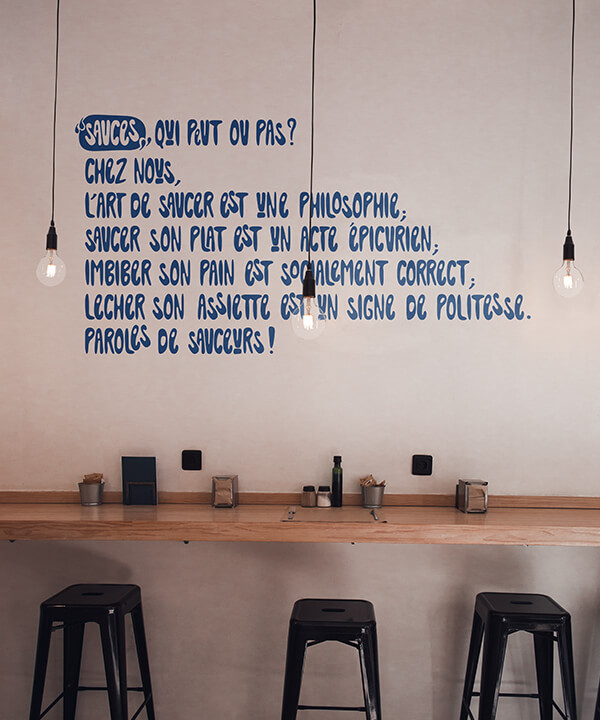 SAUCES, QUI PEUT OU PAS?
CHEZ NOUS,
L'ART DE SAUCER EST UNE PHILOSOPHIE;
SAUCER SON PLAT EST UN ACTE ÉPICURIEN;
IMBIBER SON PAIN EST SOCIALEMENT CORRECT;
LECHER SON ASSIETTE EST UN SIGNE DE POLITESSE.
PAROLES DE SAUCEURS!